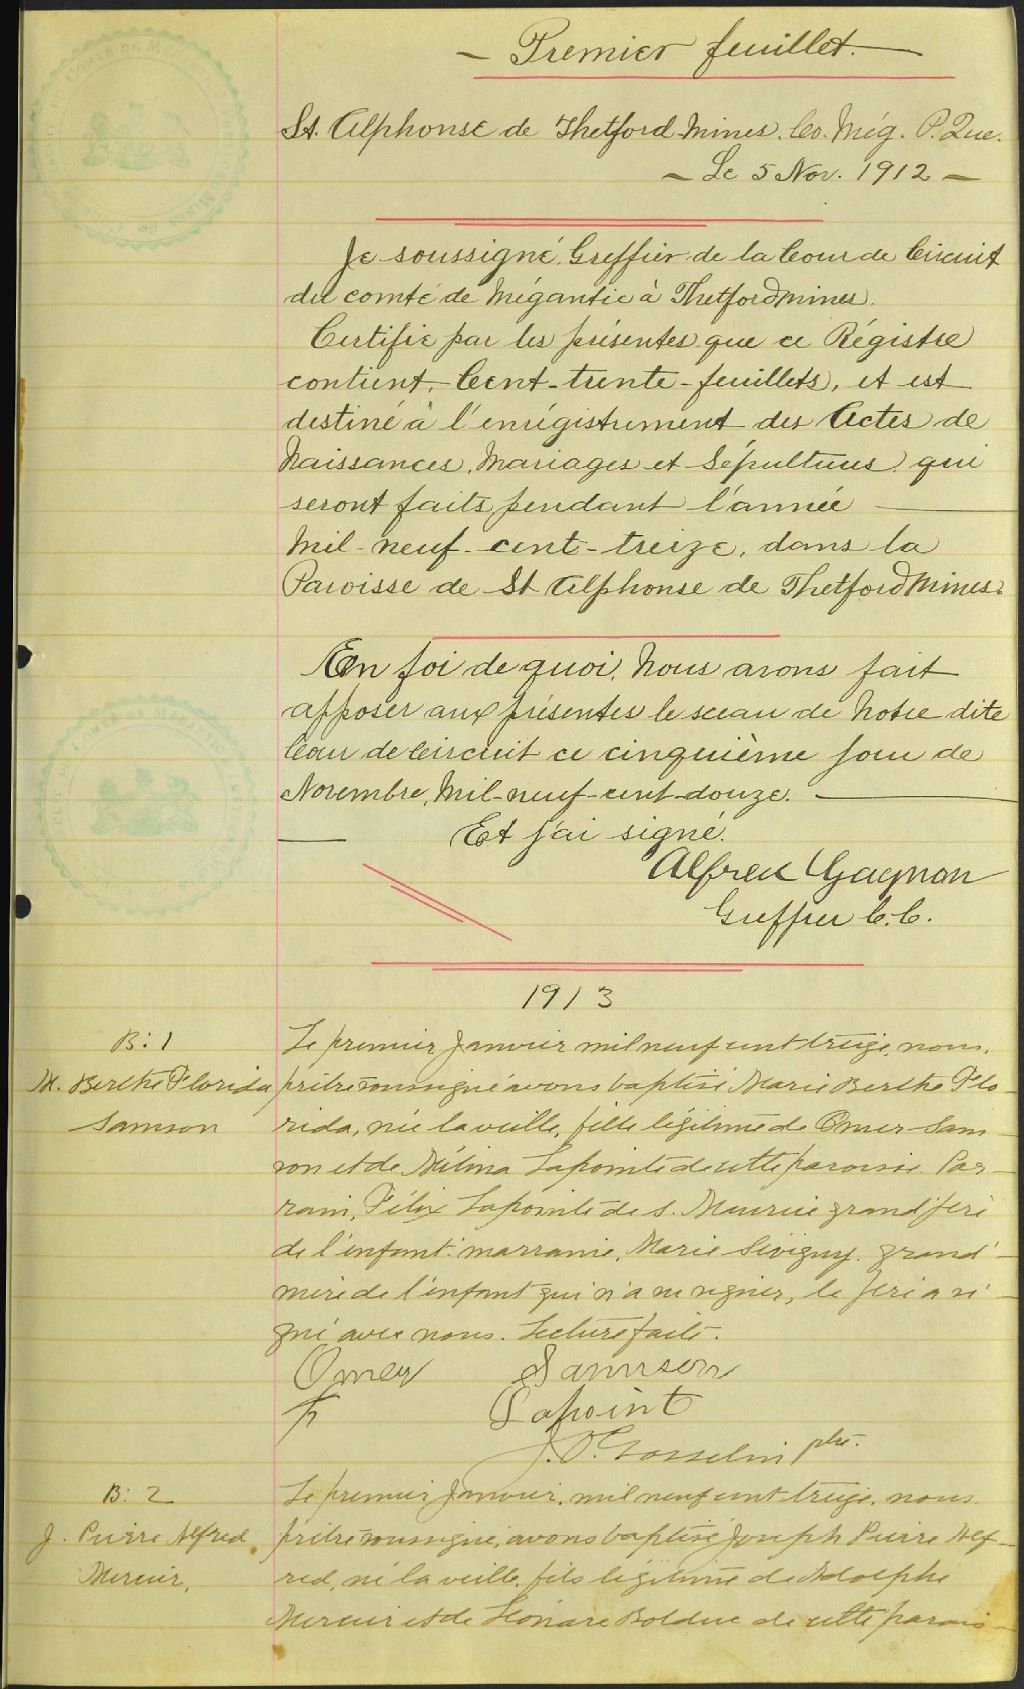 — Premier feuillet. —
St. Alphonse de Thetford-Mines. Co. Még. P. Que.
— Le 5 Nov. 1912 —
Je soussigné, Greffier de la Cour de Circuit
du comté de Mégantic à Thetfordmines.
Certifie par les présentes que ce Régistre
contient, Cent-trente-feuillets, et est
destiné à l'enrégistrement des Actes de
Naissances, Mariages et Sépultures, qui
seront faits pendant l'année —
Mil-neuf-cent-treize, dans la
Paroisse de St Alphonse de Thetford Mines.
En foi de quoi, Nous avons fait
apposer aux présentes le sceau de Notre dite
Cour de Circuit ce cinquième jour de
Novembre, Mil-neuf-cent-douze. —
— Et j'ai signé.
Alfred Gagnon
Greffier C.C.
1913
B: 1
M. Berthe Florida
Samson
Le premier Janvier mil neuf cent treize, nous,
prêtre soussigné avons baptisé Marie Berthe Flo-
rida, née la veille, fille légitime de Omer Sam-
son et de Mélina Lapointe de cette paroisse. Par-
rain, Félix Lapointe de s. Maurice grand'père
de l'enfant: marraine, Marie Sévigny, grand'-
mère de l'enfant qui n'a su signer, le père a si-
gné avec nous. Lecture faite.
Omer Samson
F Lapoint
J. O. Gosselin ptre.
B: 2
J. Pierre Alfred
Mercier,
Le premier Janvier, mil neuf cent treize, nous
prêtre soussigné, avons baptisé Joseph Pierre Alf-
red, né la veille, fils légitime de Adolphe
Mercier et de Bolduc de cette parois-